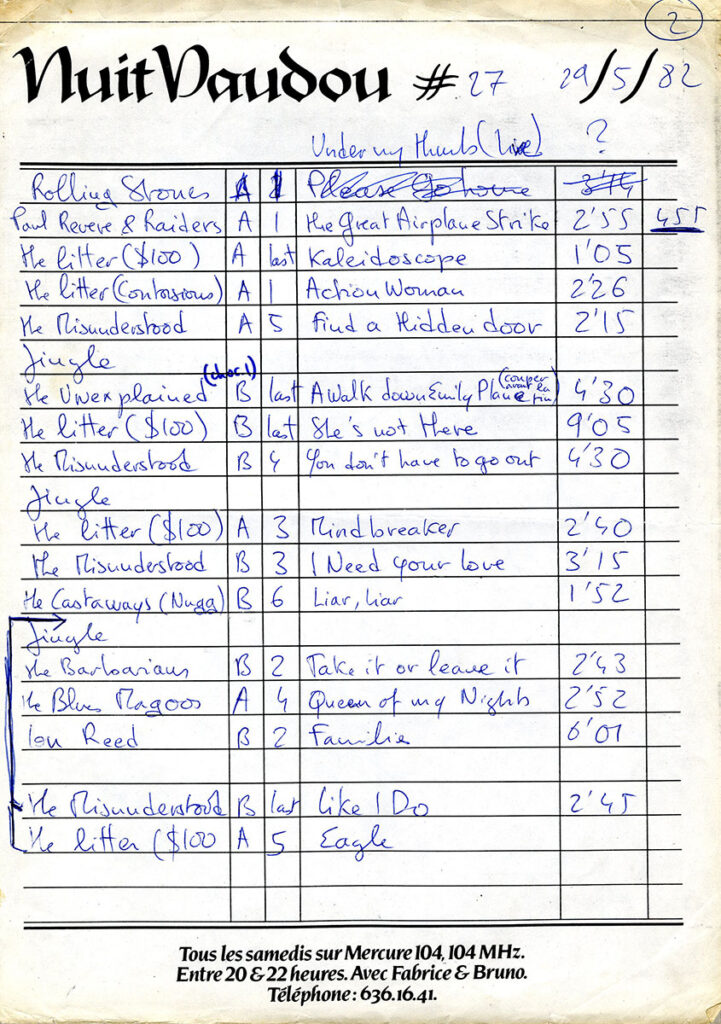 2
Nuit Vaudou # 27 29/5/82
Under my thumb (live) ?
Rolling Stones A 1 Please Go home 3'14
Paul Revere & Raiders A 1 the Great Airplane Strike 2'55 455
the litter ($100) A last Kaleidoscope 1'05
the litter (Contorsions) A 1 Action Woman 2'26
the Misunderstood A 5 find a hidden door 2'15
Jingle
the Unexplained (choc.1) B last A Walk down Emily Plane (couper avant la fin) 4'30
the litter ($100) B last She's not there 9'05
the Misunderstood B 4 You don't have to go out 4'30
Jingle
the litter ($100) A 3 Mindbreaker 2'40
the Misunderstood B 3 I Need your love 3'15
the Castaways (Nugg) B 6 Liar, liar 1'52
Jingle
the Barbarians B 2 Take it or leave it 2'43
the Blues Magoos A 4 Queen of my Nights 2'52
Lou Reed B 2 Families 6'01
the Misunderstood B last like I Do 2'45
the litter ($100 A 5 Eagle
Tous les samedis sur Mercure 104, 104 MHz.
Entre 20 & 22 heures. Avec Fabrice & Bruno.
Téléphone : 636.16.41.